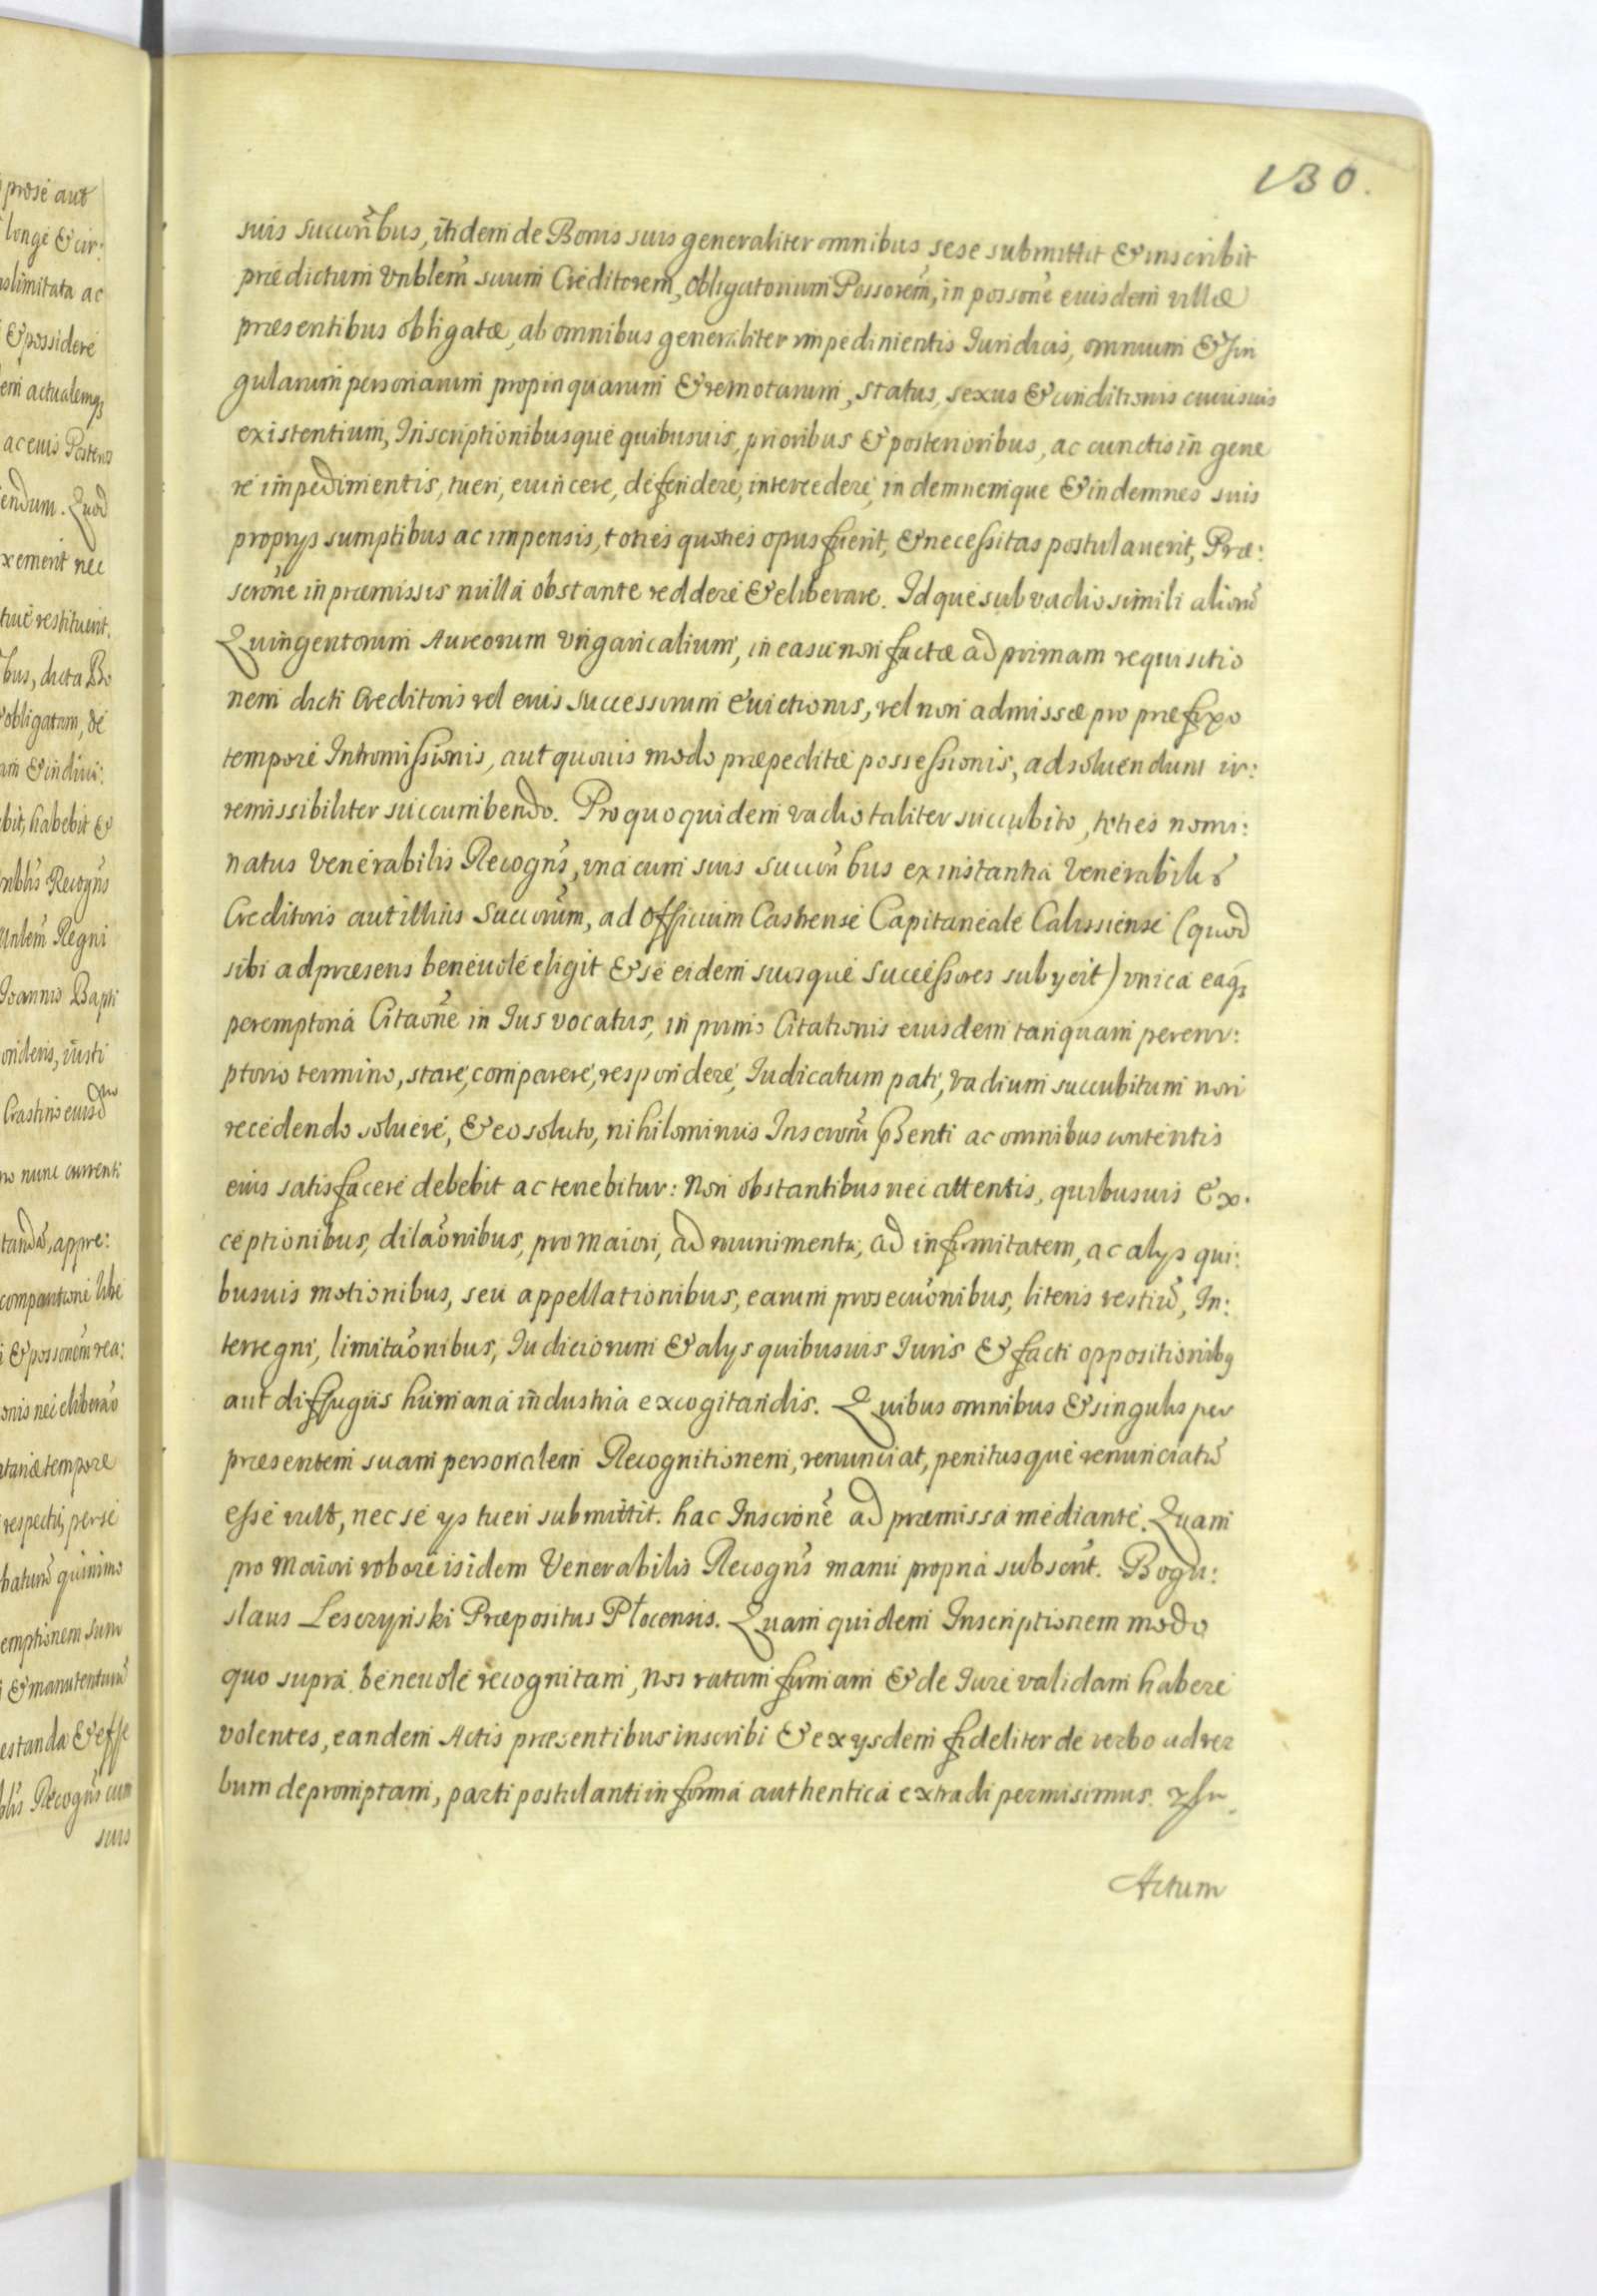 130.
suis succoribus, itidem de Bonis suis generaliter omnibus sese submittit & inscribit
prædictum Vnblem suum Creditorem, obligatorium Possorem, in possone eiusdem villæ
præsentibus obligatæ, ab omnibus generaliter impedimentis Iuridicis, omnium & sin
gularum personarum propinquarum & remotarum, status, sexus & conditionis cuiusuis
existentium, Inscriptionibusque quibusuis, prioribus & posterioribus, ac cunctis in gene
re impedimentis, tueri, euincere, defendere, intercedere, indemnemque & indemnes suis
proprys sumptibus ac impensis, toties quoties opus fuerit, & necessitas postulauerit, Præ:
scrone in præmissis nulla obstante reddere & eliberare. Idque sub vadio simili aliorum
Quingentorum Aureorum Vngaricalium, in casu non factæ ad primam requisitio
nem dicti Creditoris vel eius successorum euictionis, vel non admissæ pro præfixo
tempore Intromissionis, aut quouis modo præpeditæ possessionis, ad soluendum ir:
remissibiliter succumbendo. Pro quo quidem vadio taliter succubito, toties nomi:
natus Venerabilis Recogns, vna cum suis succoribus ex instantia Venerabilis
Creditoris aut illius Succorum, ad Officium Castrense Capitaneale Calissiense (quod
sibi ad præsens beneuole eligit & se eidem suosque successores subycit) vnica eaq;
peremptoria Citaone in Ius vocatus, in primo Citationis eiusdem tanquam perem:
ptorio termino, stare, comparere, respondere, Iudicatum pati, vadium succubitum non
recedendo soluere, & eo soluto, nihilominus Inscroni pnti ac omnibus contentis
eius satisfacere debebit ac tenebitur: Non obstantibus nec attentis, quibusuis Ex.
ceptionibus, dilaonibus, pro maiori, ad munimenta, ad infirmitatem, ac alys qui:
busuis motionibus, seu appellationibus, earum prosecuonibus, literis restium, In:
terregni, limitaonibus, Iudiciorum & alys quibusuis Iuris & facti oppositionibq
aut diffugiis humana industria excogitandis. Quibus omnibus & singulis per
præsentem suam personalem Recognitionem, renunciat, penitusque renunciatum
esse vult, nec se ys tueri submittit. hac Inscrone ad præmissa mediante. Quam
pro maiori robore isidem Venerabilis Recogns manu propria subscrit. Bogu:
slaus Lesczynski Præpositus Plocensis. Quam quidem Inscriptionem modo
quo supra beneuole recognitam, nos ratam firmam & de Iure validam habere
volentes, eandem Actis præsentibus inscribi & ex ysdem fideliter de verbo ad ver
bum depromptam, parti postulanti in forma authentica extradi permisimus.
Actum